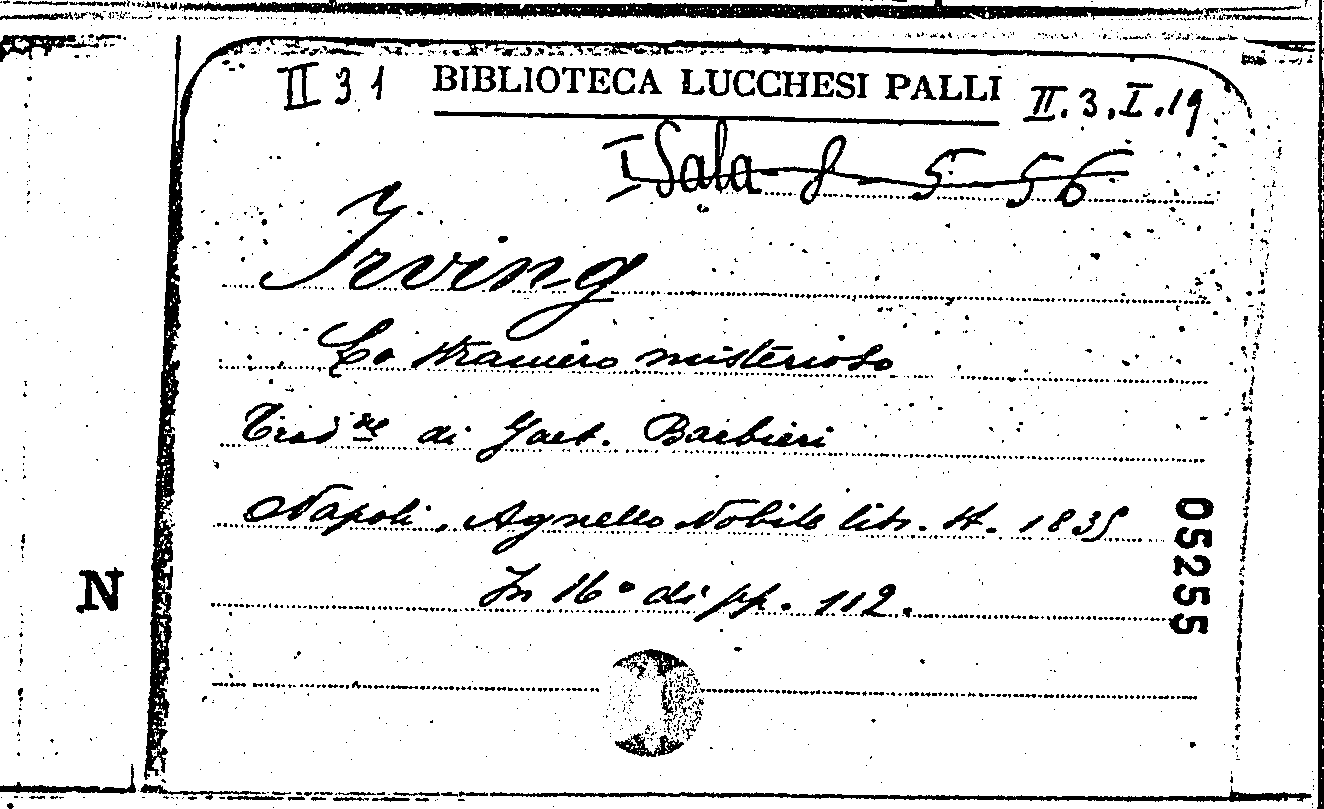 II 3 1 BIBLIOTECA LUCCHESI PALLI II.3.I.19
I Sala 8 - 5 - 56
Irving
Lo straniero misterioso
Trad.ne di Gaet. Barbieri
Napoli, Agnello Nobile libr. st. 1835
In 16° di pp. 112.
05255
N